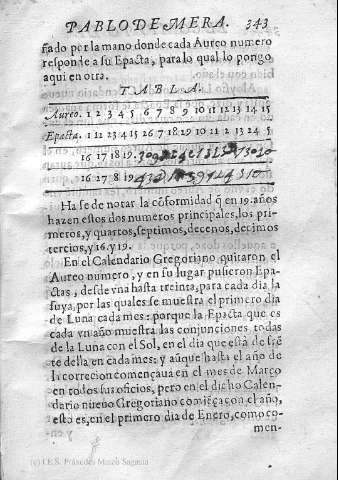 PABLO DE MERA. 343
ſado por la mano donde cada Aureo numero
reſponde a ſu Epacta, para lo qual lo pongo
aqui en otra.
TABLA.
Aureo. 1 2 3 4 5 6 7 8 9 10 11 12 13 14 15
Epacta. 1 12 23 4 15 26 7 18 29 10 11 2 13 24 5
16 17 18 19.
16 27 8 19
Ha ſe de notar la cõformidad q̃ en 19. años
hazen eſtos dos numeros principales, los pri
meros, y quartos, ſeptimos, decenos, decimos
tercios, y 16. y 19.
En el Calendario Gregoriano quitaron el
Aureo numero, y en ſu lugar puſieron Epa-
ctas, deſde vna haſta treinta, para cada dia la
ſuya, por las quales ſe mueſtra el primero dia
de Luna cada mes: porque la Epacta que es
cada vn año mueſtra las conjunciones todas
de la Luna con el Sol, en el dia que eſtà de frẽ
te della en cada mes: y aũque haſta el año de
la correcion començaua en el mes de Março
en todos ſus oficios, pero en el dicho Calen-
dario nueuo Gregoriano comiẽça con el año,
eſto es, en el primero dia de Enero, como co-
men-
(c) I.E.S. Práxedes Mateo Sagasta